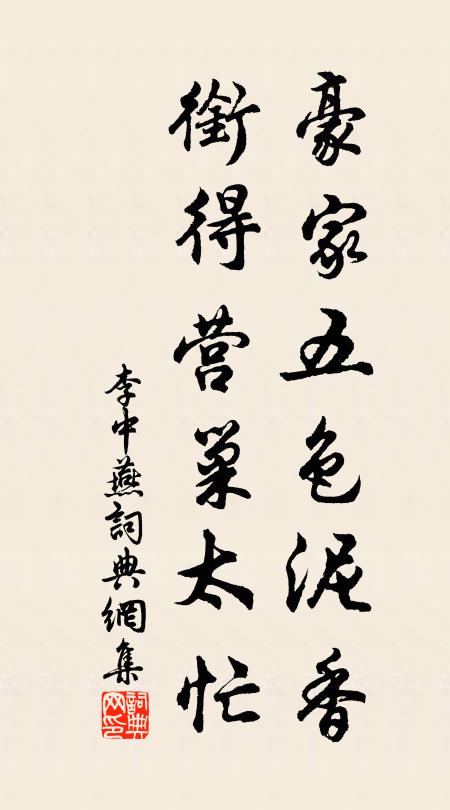 豪家五色泥香
銜得营巢太忙
李中燕詞典網集
詞典网印